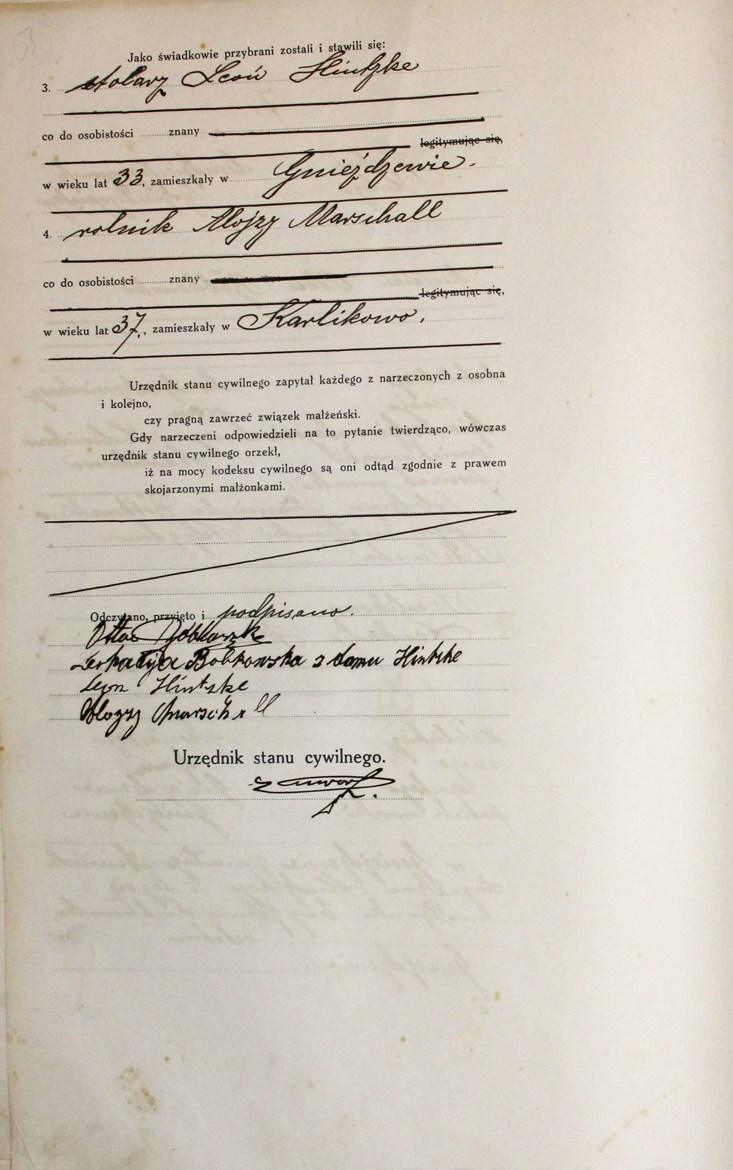 Jako świadkowie przybrani zostali i stawili się:
3. stolarz Leon Hintzke
co do osobistości znany
legitymując się,
w wieku lat 33, zamieszkały w Gnieżdżewie.
4. rolnik Alojzy Marschall
co do osobistości znany
legitymując się,
w wieku lat 37, zamieszkały w Karlikowo,
Urzędnik stanu cywilnego zapytał każdego z narzeczonych z osobna
i kolejno,
czy pragną zawrzeć związek małżeński.
Gdy narzeczeni odpowiedzieli na to pytanie twierdząco, wówczas
urzędnik stanu cywilnego orzekł,
iż na mocy kodeksu cywilnego są oni odtąd zgodnie z prawem
skojarzonymi małżonkami.
Odczytano, przyjęto i podpisano.
Otto
Bobkowska z domu Hintzke
Leon Hintzke
Alojzy Marschall
Urzędnik stanu cywilnego.